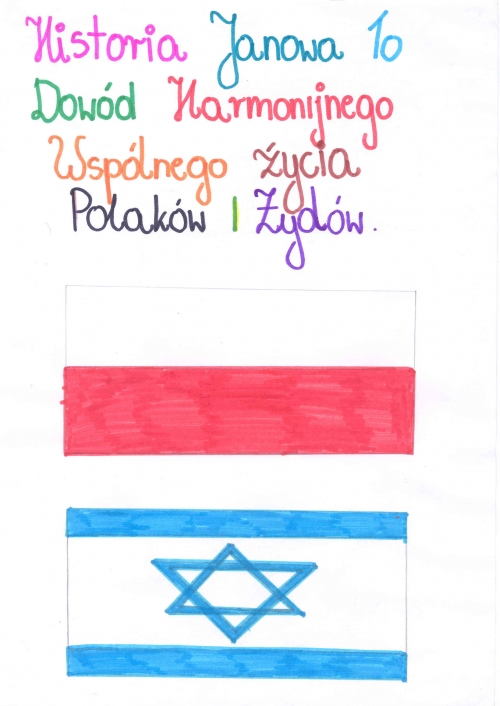 Historia Janowa To
Dowód Harmonijnego
Wspólnego życia
Polaków I Żydów.